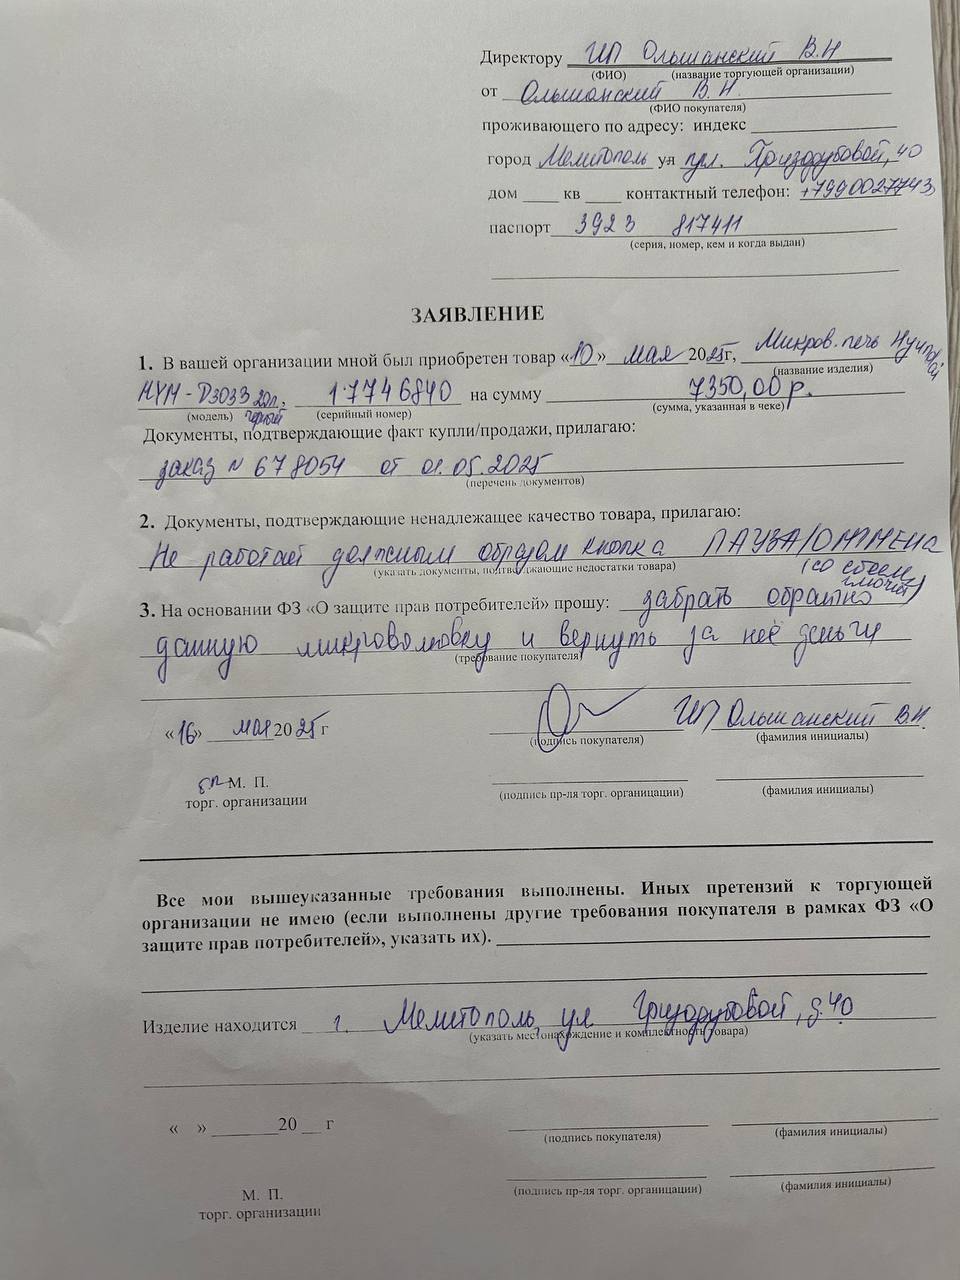 Директору ИП Ольшанский В.Н
(ФИО) (название торгующей организации)
от Ольшанский В.Н.
(ФИО покупателя)
проживающего по адресу: индекс
город Мелитополь ул ул. Гризодубовой, 40
дом кв контактный телефон: +7990027743
паспорт 3923 817411
(серия, номер, кем и когда выдан)
ЗАЯВЛЕНИЕ
1. В вашей организации мной был приобретен товар «10» мая 2025г, Микров. печь Hyundai
(название изделия)
HYM-D3033 20л, 17746840 на сумму 7350,00 р.
(модель) черный (серийный номер) (сумма, указанная в чеке)
Документы, подтверждающие факт купли/продажи, прилагаю:
заказ № 678054 от 01.05.2025
(перечень документов)
2. Документы, подтверждающие ненадлежащее качество товара, прилагаю:
Не работает должным образом кнопка ПАУЗА/ОТМЕНА
(указать документы, подтверждающие недостатки товара) (со сбоем глючит)
3. На основании ФЗ «О защите прав потребителей» прошу: забрать обратно
данную микроволновку и вернуть за неё деньги
(требование покупателя)
«16» мая 2025 г ИП Ольшанский В.Н.
(подпись покупателя) (фамилия инициалы)
М. П.
торг. организации (подпись пр-ля торг. органицации) (фамилия инициалы)
Все мои вышеуказанные требования выполнены. Иных претензий к торгующей
организации не имею (если выполнены другие требования покупателя в рамках ФЗ «О
защите прав потребителей», указать их).
Изделие находится г. Мелитополь, ул Гризодубовой, д.40
(указать местонахождение и комплектность товара)
« » 20 г
(подпись покупателя) (фамилия инициалы)
М. П.
торг. организации (подпись пр-ля торг. органицации) (фамилия инициалы)